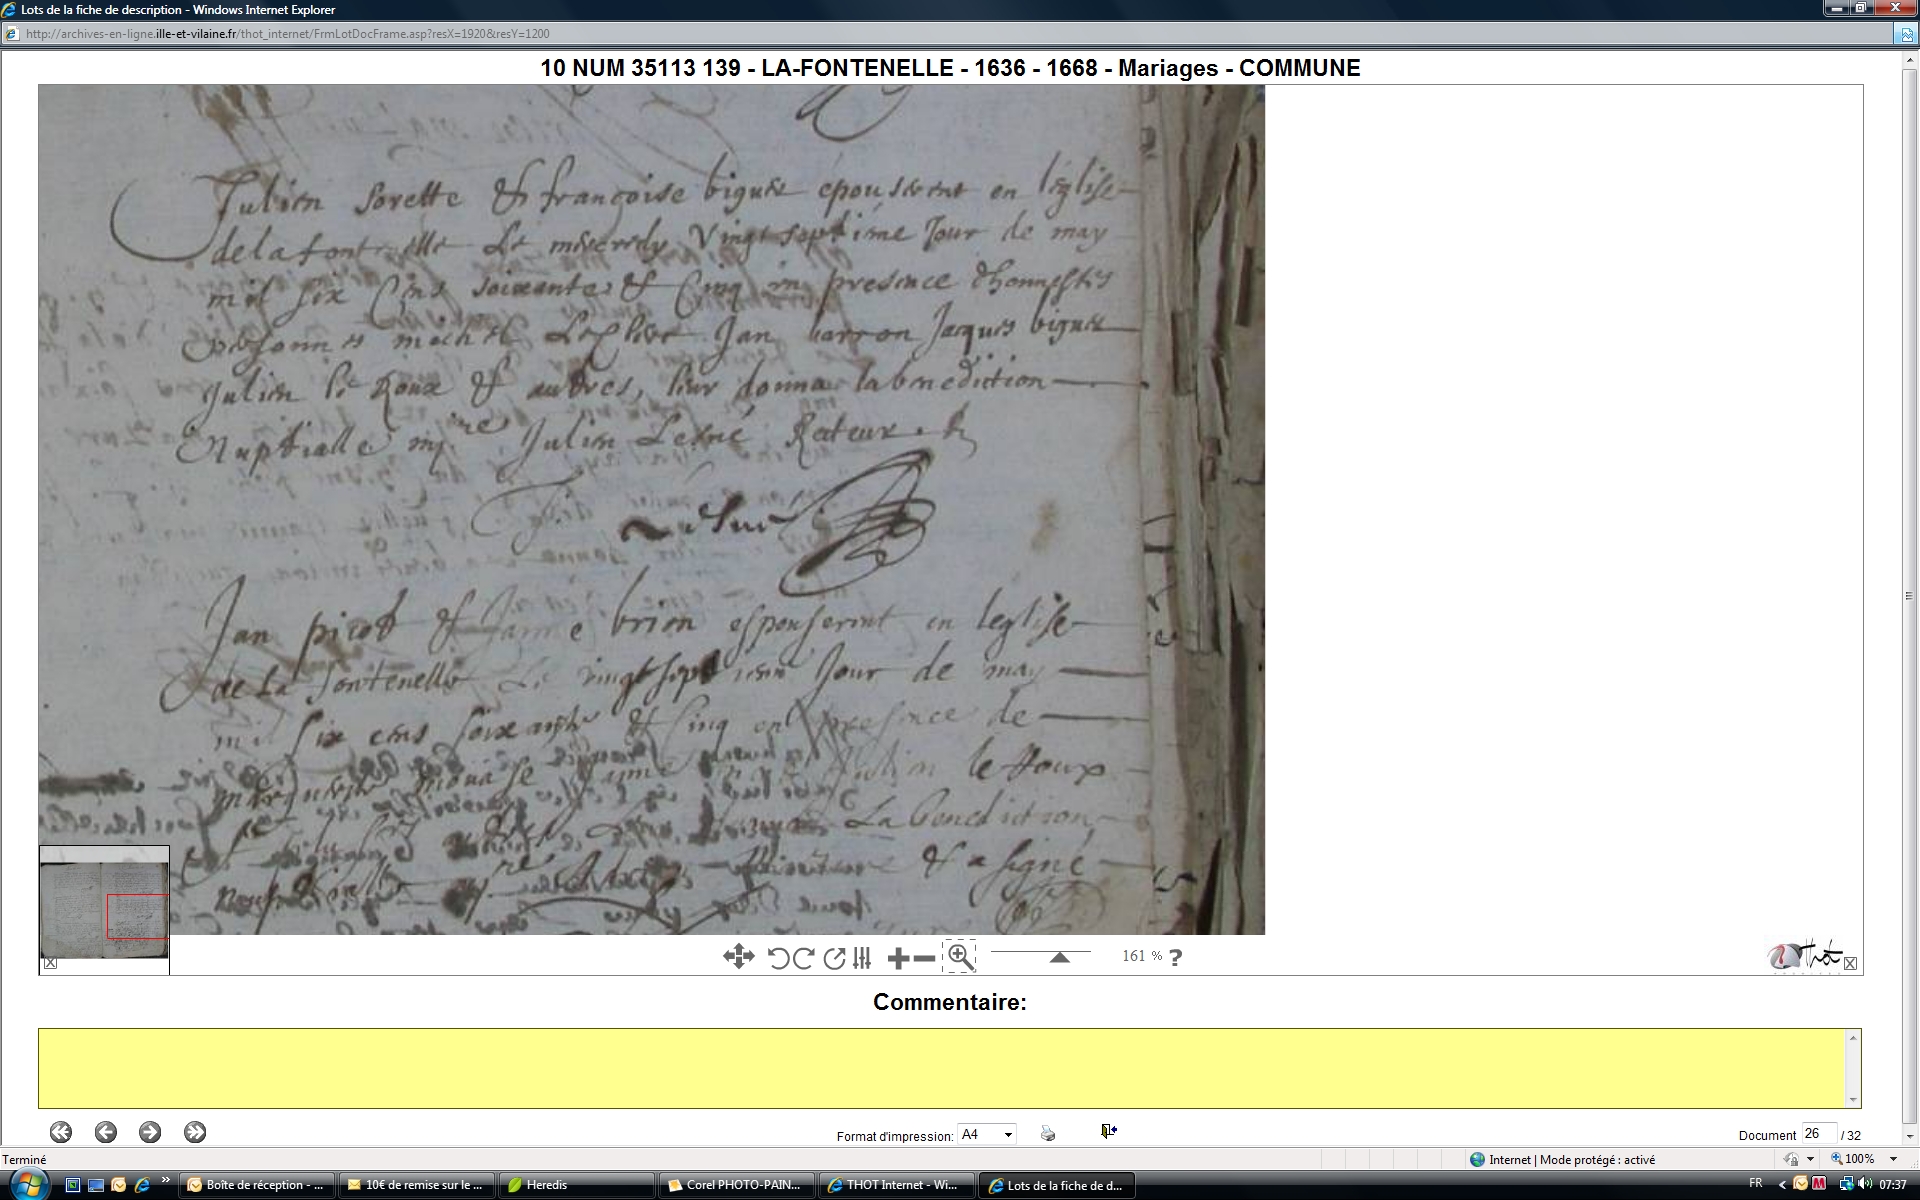 Lots de la fiche de description - Windows Internet Explorer
http://archives-en-ligne.ille-et-vilaine.fr/thot_internet/FrmLotDocFrame.asp?resX=1920&resY=1200
10 NUM 35113 139 - LA-FONTENELLE - 1636 - 1668 - Mariages - COMMUNE
Julien sorette & françoise biguer épouserent en léglise
de la font elle Le mecredy Vingt septiéme Jour de may
mil six Cens soixante & Cinq in presence dhonnestes
personnes michel Jan barron Jacques biguer
Julien le Roux & autres, leur donna la benediction
Nuptialle Julien Recteur
Jan picot & Janne brion espouserent en leglise
de La fontenelle Le vingt sept Jour de may
mil six cens soixante & cinq en presence de
Julien le Roux
La benediction
& a signé
161 % ?
Thot
Commentaire:
Format d'impression: A4
Document 26 / 32
Terminé
Internet | Mode protégé : activé
100%
Boîte de réception - ...
10€ de remise sur le ...
Heredis
Corel PHOTO-PAIN...
THOT Internet - Wi...
Lots de la fiche de d...
FR
07:37